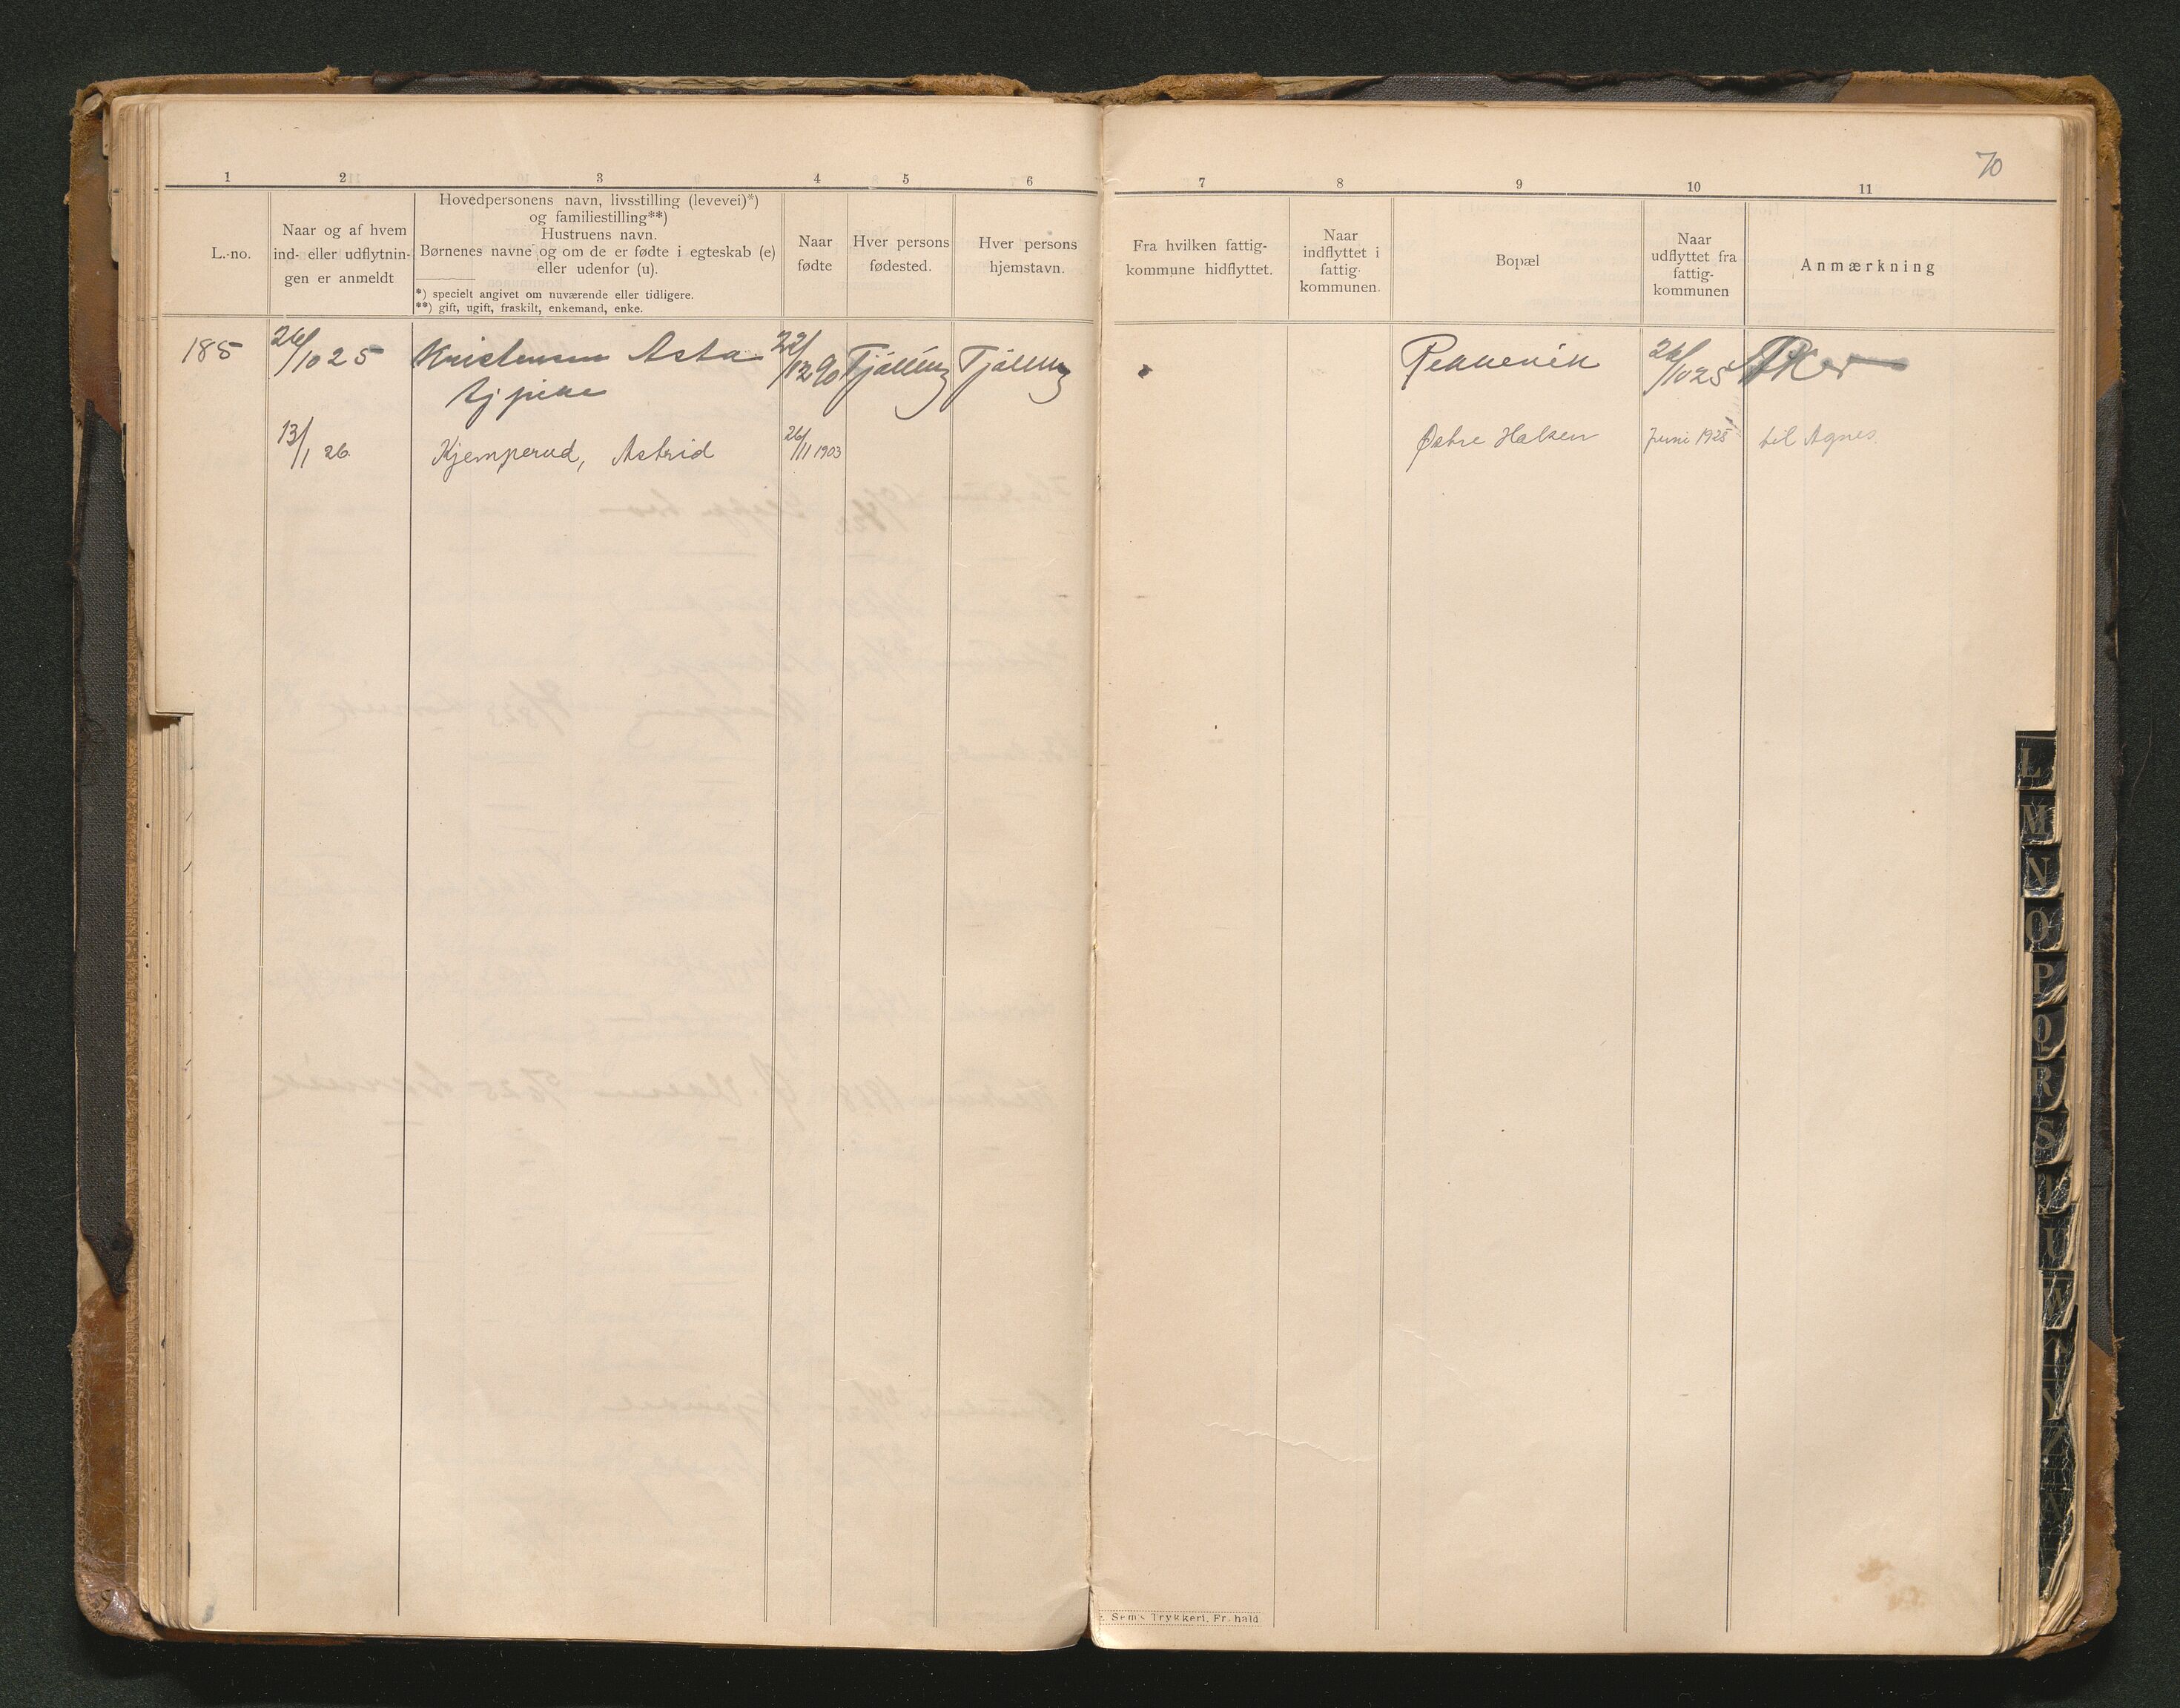 70
1 2 3 4 5 6 7 8 9 10 11
L.-no.
Naar og af hvem
ind- eller udflytnin-
gen er anmeldt
Hovedpersonens navn, livsstilling (levevei)*)
og familiestilling**)
Hustruens navn.
Børnenes navne og om de er fødte i egteskab (e)
eller udenfor (u).
*) specielt angivet om nuværende eller tidligere.
**) gift, ugift, fraskilt, enkemand, enke.
Naar
fødte
Hver persons
fødested.
Hver persons
hjemstavn.
Fra hvilken fattig-
kommune hidflyttet.
Naar
indflyttet i
fattig-
kommunen.
Bopæl
Naar
udflyttet fra
fattig-
kommunen
Anmærkning
185 26/10 25 Kristensen Asta 22/12 90 Tjølling Tjølling Rekkevik 26/10 25 Aker
tj pike
13/1 26 Kjemperud, Astrid 26/11 1903 Østre Halsen Juni 1925 til Agnes
L
M
N
O
P
Q
R
S
T
U
Y
Sem's Trykkeri, Fr.hald